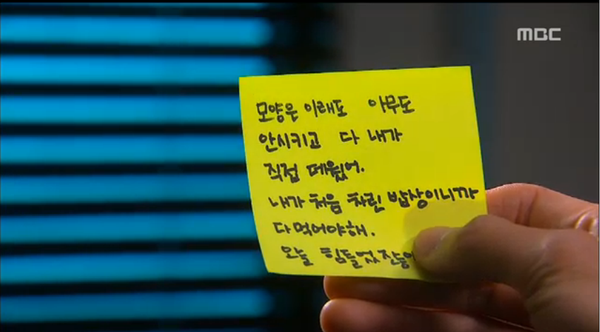 MBC
모양은 이래도 아무도
안시키고 다 내가
직접 데웠어.
내가 처음 차린 밥상이니까
다 먹어야해.
오늘 힘들었